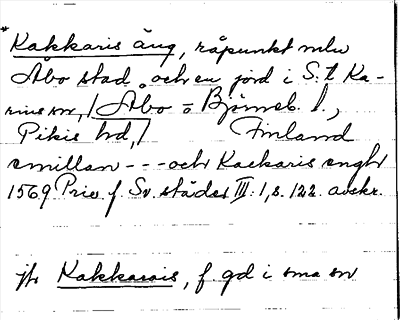 * Kakkaris äng, råpunkt mlu
Åbo stad och en jord i S:t Ka-
rins sn, / Åbo o Björneb. l.,
Pikis hd, / Finland
emillan - - - och Kackaris enghr
1569 Priv. f. Sv. städer III: 1, s. 122. avskr.
jfr Kakkarais, f. gd i sma sn